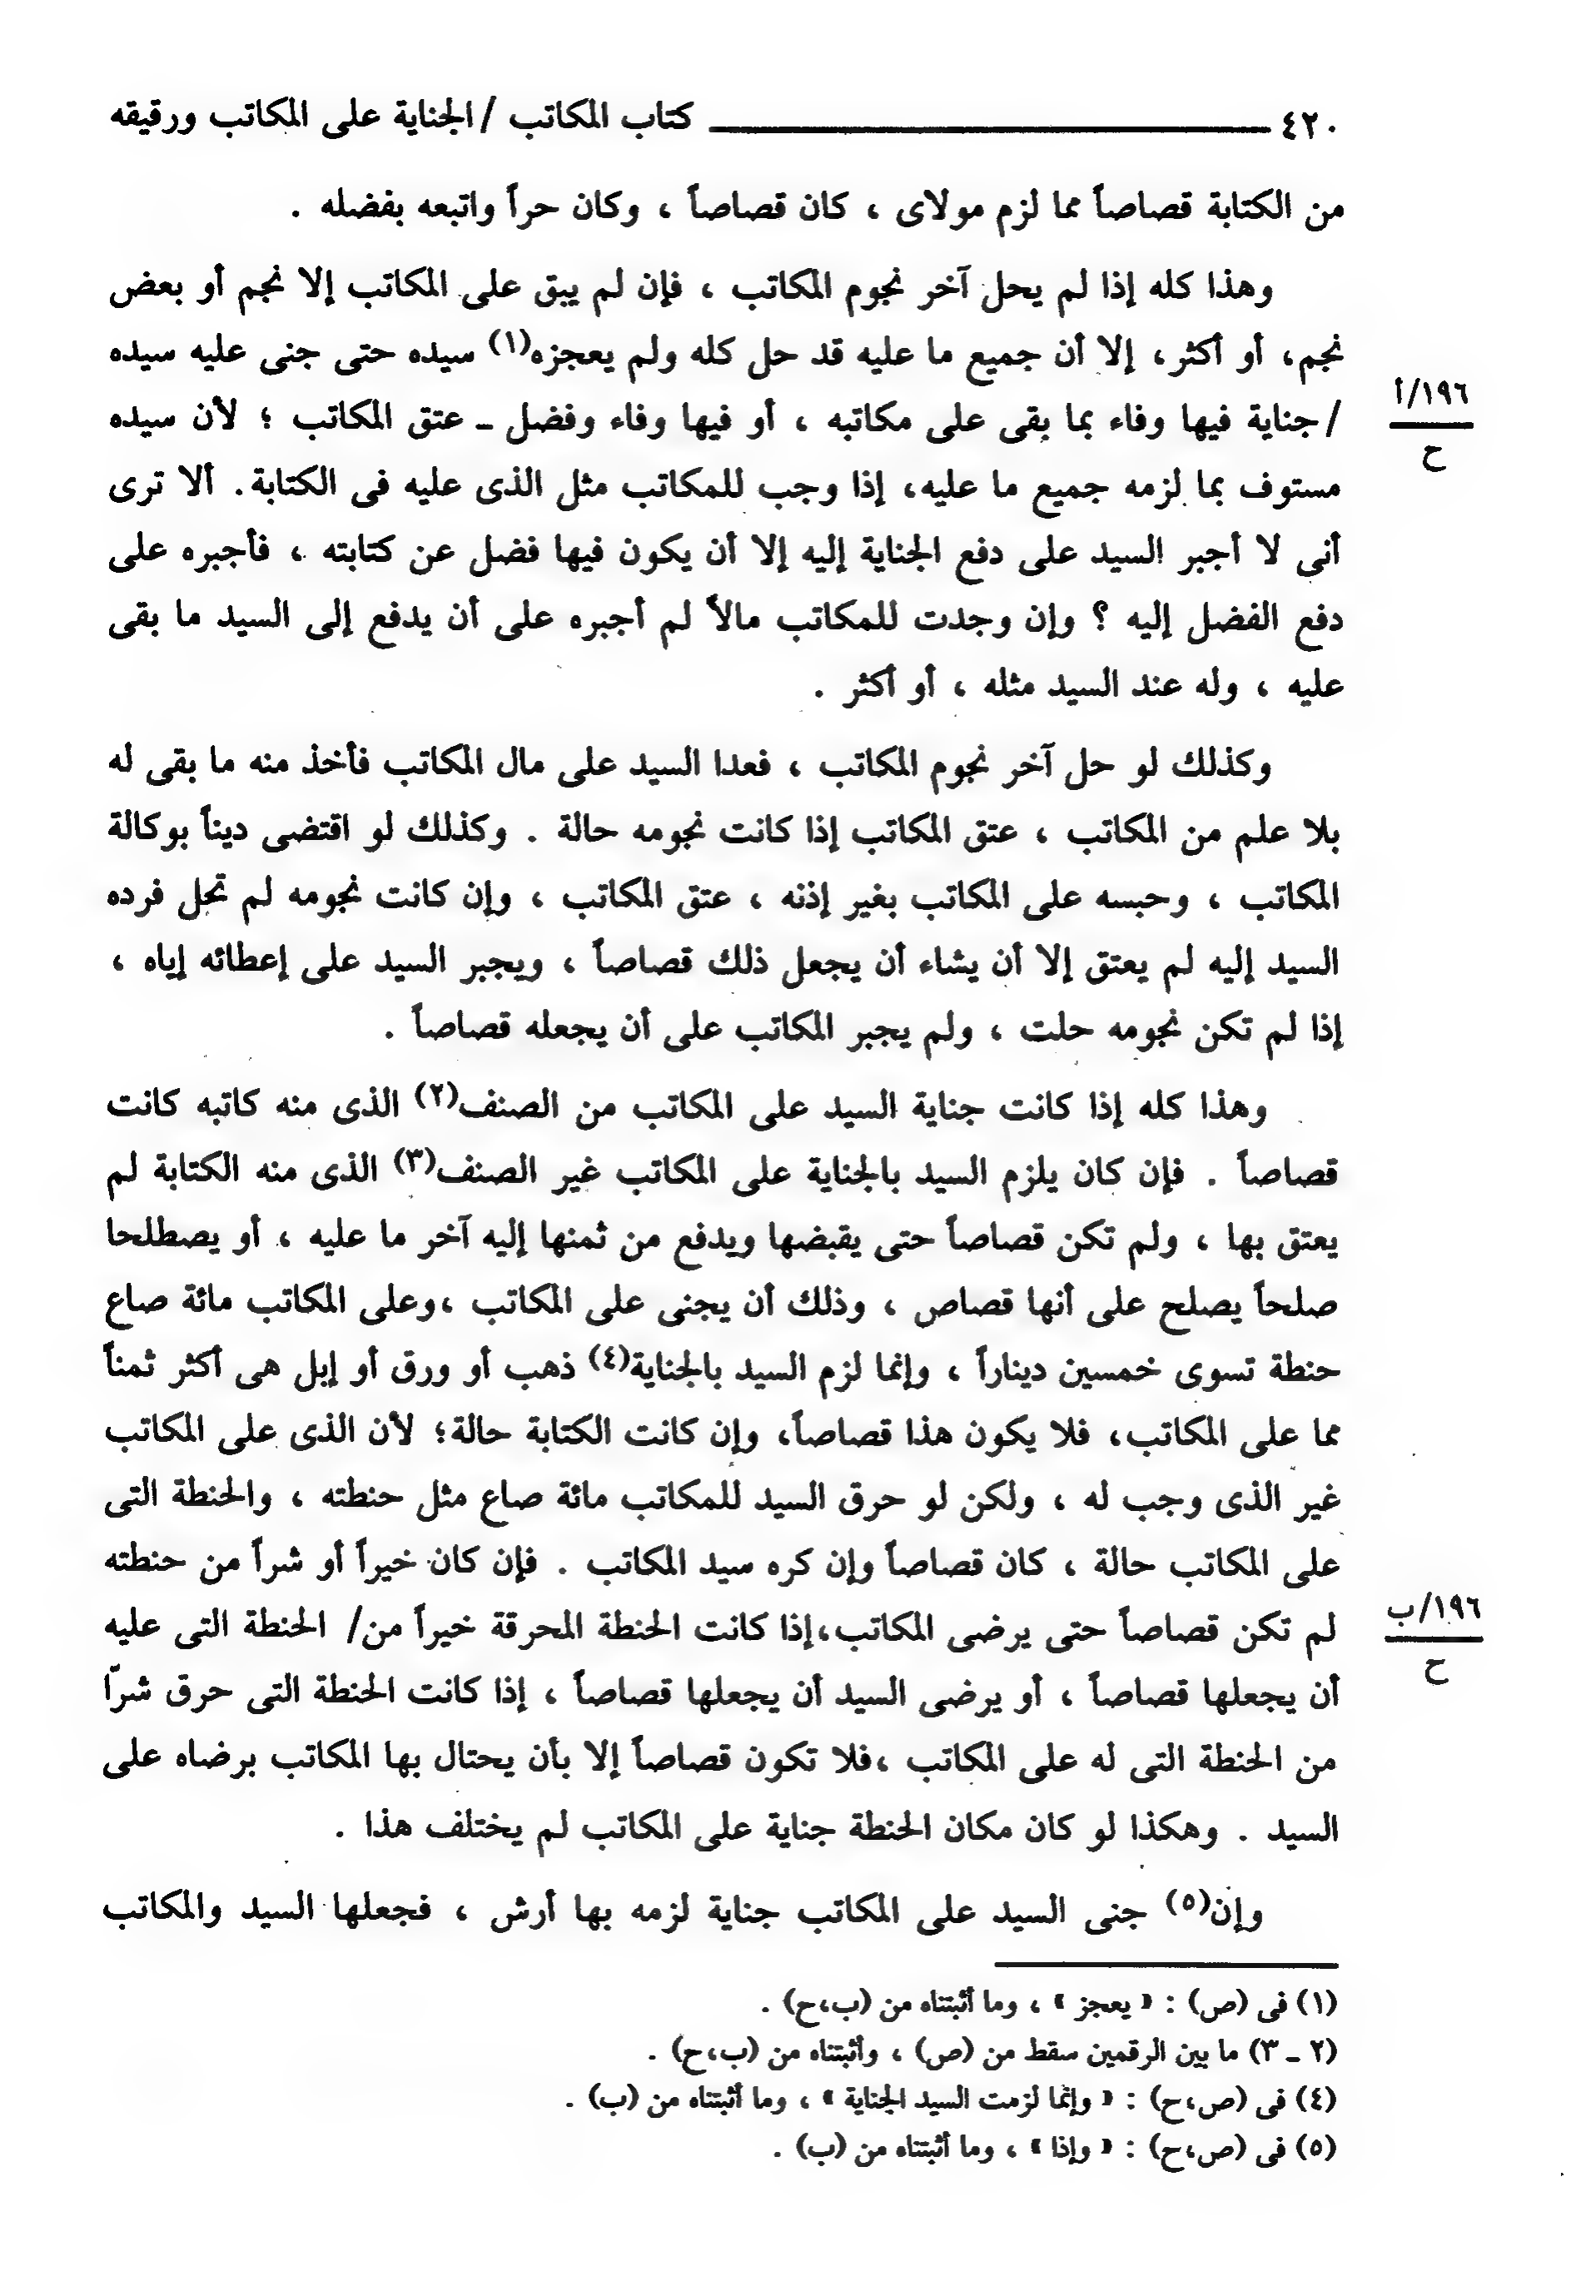 ٤٢٠ كتاب المكاتب / الجناية على المكاتب ورقيقه
من الكتابة قصاصاً مما لزم مولاى ، كان قصاصاً ، وكان حراً واتبعه بفضله .
وهذا كله إذا لم يحل آخر نجوم المكاتب ، فإن لم يبق على المكاتب إلا نجم أو بعض
نجم، أو أكثر، إلا أن جميع ما عليه قد حل كله ولم يعجزه(١) سيده حتى جنى عليه سيده
١٩٦/أ
ح
/ جناية فيها وفاء بما بقى على مكاتبه ، أو فيها وفاء وفضل ـ عتق المكاتب ؛ لأن سيده
مستوف بما لزمه جميع ما عليه، إذا وجب للمكاتب مثل الذى عليه فى الكتابة. ألا ترى
أنى لا أجبر السيد على دفع الجناية إليه إلا أن يكون فيها فضل عن كتابته ، فأجبره على
دفع الفضل إليه ؟ وإن وجدت للمكاتب مالاً لم أجبره على أن يدفع إلى السيد ما بقى
عليه ، وله عند السيد مثله ، أو أكثر .
وكذلك لو حل آخر نجوم المكاتب ، فعدا السيد على مال المكاتب فأخذ منه ما بقى له
بلا علم من المكاتب ، عتق المكاتب إذا كانت نجومه حالة . وكذلك لو اقتضى ديناً بوكالة
المكاتب ، وحبسه على المكاتب بغير إذنه ، عتق المكاتب ، وإن كانت نجومه لم تحل فرده
السيد إليه لم يعتق إلا أن يشاء أن يجعل ذلك قصاصاً ، ويجبر السيد على إعطائه إياه ،
إذا لم تكن نجومه حلت ، ولم يجبر المكاتب على أن يجعله قصاصاً .
وهذا كله إذا كانت جناية السيد على المكاتب من الصنف(٢) الذى منه كاتبه كانت
قصاصاً . فإن كان يلزم السيد بالجناية على المكاتب غير الصنف(٣) الذى منه الكتابة لم
يعتق بها ، ولم تكن قصاصاً حتى يقبضها ويدفع من ثمنها إليه آخر ما عليه ، أو يصطلحا
صلحاً يصلح على أنها قصاص ، وذلك أن يجنى على المكاتب ،وعلى المكاتب مائة صاع
حنطة تسوى خمسين ديناراً ، وإنما لزم السيد بالجناية(٤) ذهب أو ورق أو إبل هى أكثر ثمناً
مما على المكاتب، فلا يكون هذا قصاصاً، وإن كانت الكتابة حالة؛ لأن الذى على المكاتب
غير الذى وجب له ، ولكن لو حرق السيد للمكاتب مائة صاع مثل حنطته ، والحنطة التى
على المكاتب حالة ، كان قصاصاً وإن كره سيد المكاتب . فإن كان خيراً أو شراً من حنطته
١٩٦/ب
ح
لم تكن قصاصاً حتى يرضى المكاتب،إذا كانت الحنطة المحرقة خيراً من/ الحنطة التى عليه
أن يجعلها قصاصاً ، أو يرضى السيد أن يجعلها قصاصاً ، إذا كانت الحنطة التى حرق شرّا
من الحنطة التى له على المكاتب ،فلا تكون قصاصاً إلا بأن يحتال بها المكاتب برضاه على
السيد . وهكذا لو كان مكان الحنطة جناية على المكاتب لم يختلف هذا .
وإن(٥) جنى السيد على المكاتب جناية لزمه بها أرش ، فجعلها السيد والمكاتب
(١) فى (ص) : « يعجز » ، وما أثبتناه من (ب،ح) .
(٢ ـ ٣) ما بين الرقمين سقط من (ص) ، وأثبتناه من (ب،ح) .
(٤) فى (ص،ح) : « وإنما لزمت السيد الجناية » ، وما أثبتناه من (ب) .
(٥) فى (ص،ح) : « وإذا » ، وما أثبتناه من (ب) .